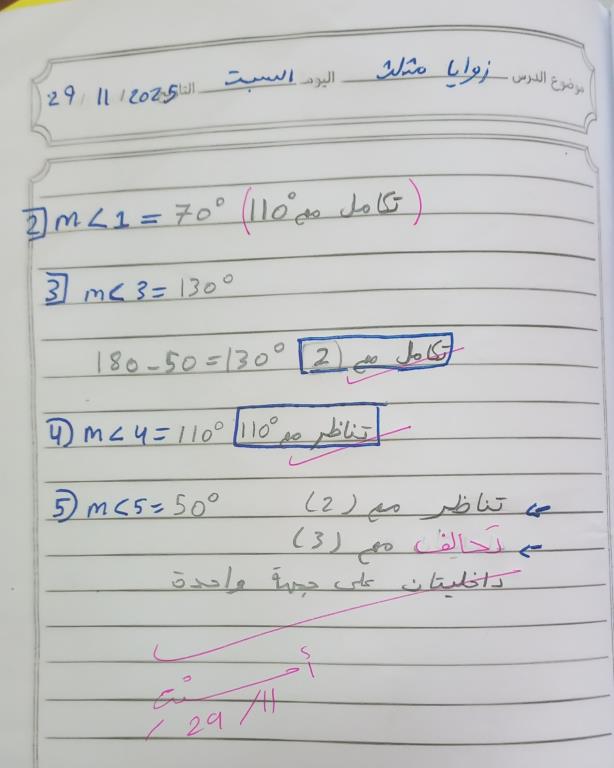 موضوع الدرس زوايا مثلث اليوم السبت التاريخ 29/11/2025
2) m<1 = 70° (تكامل مع 110°)
3) m<3 = 130°
180-50=130° تكامل مع (2)
4) m<4 = 110° تناظر مع 110°
5) m<5 = 50° تناظر مع (2) ←
تحالف مع (3) ←
داخليتان على جهة واحدة
أحسنت
29/11